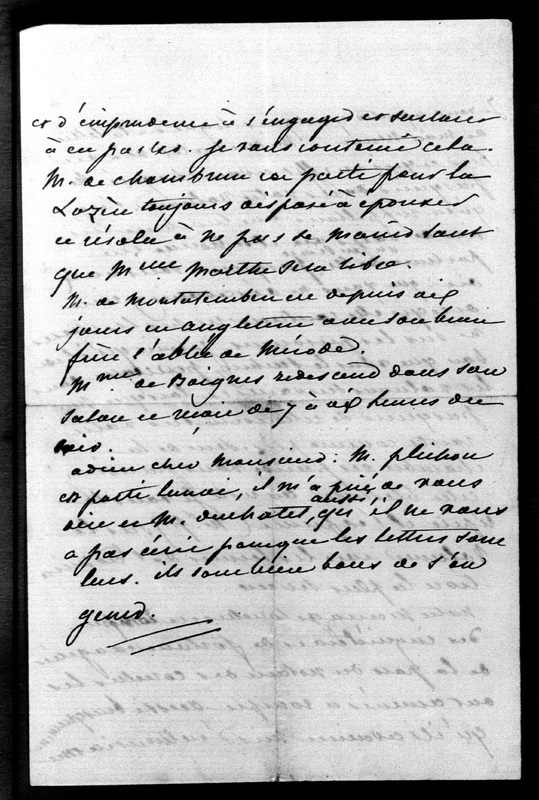 et d'imprudence à s'engager et surtout
à ce . Je vous conterai cela.
M. de Chambrun est parti pour la
Lozère toujours disposé à épouser
et résolu à ne pas se marier tant
que Mme Marthe sera libre.
M. de Montalembert est depuis dix
jours en angleterre avec son beau
frère l'abbé de Mérode.
Mme de Boignes redescend dans son
salon ce mois de 7 à dix heures du
soir.
adieu cher Monsieur. M. plichon
est parti lundi, il m'a prié de vous
dire et M. duchatel aussi, qu'il ne vous
a pas écrit parce que les lettres sont
lues. ils sont bien bons de s'en
gener.